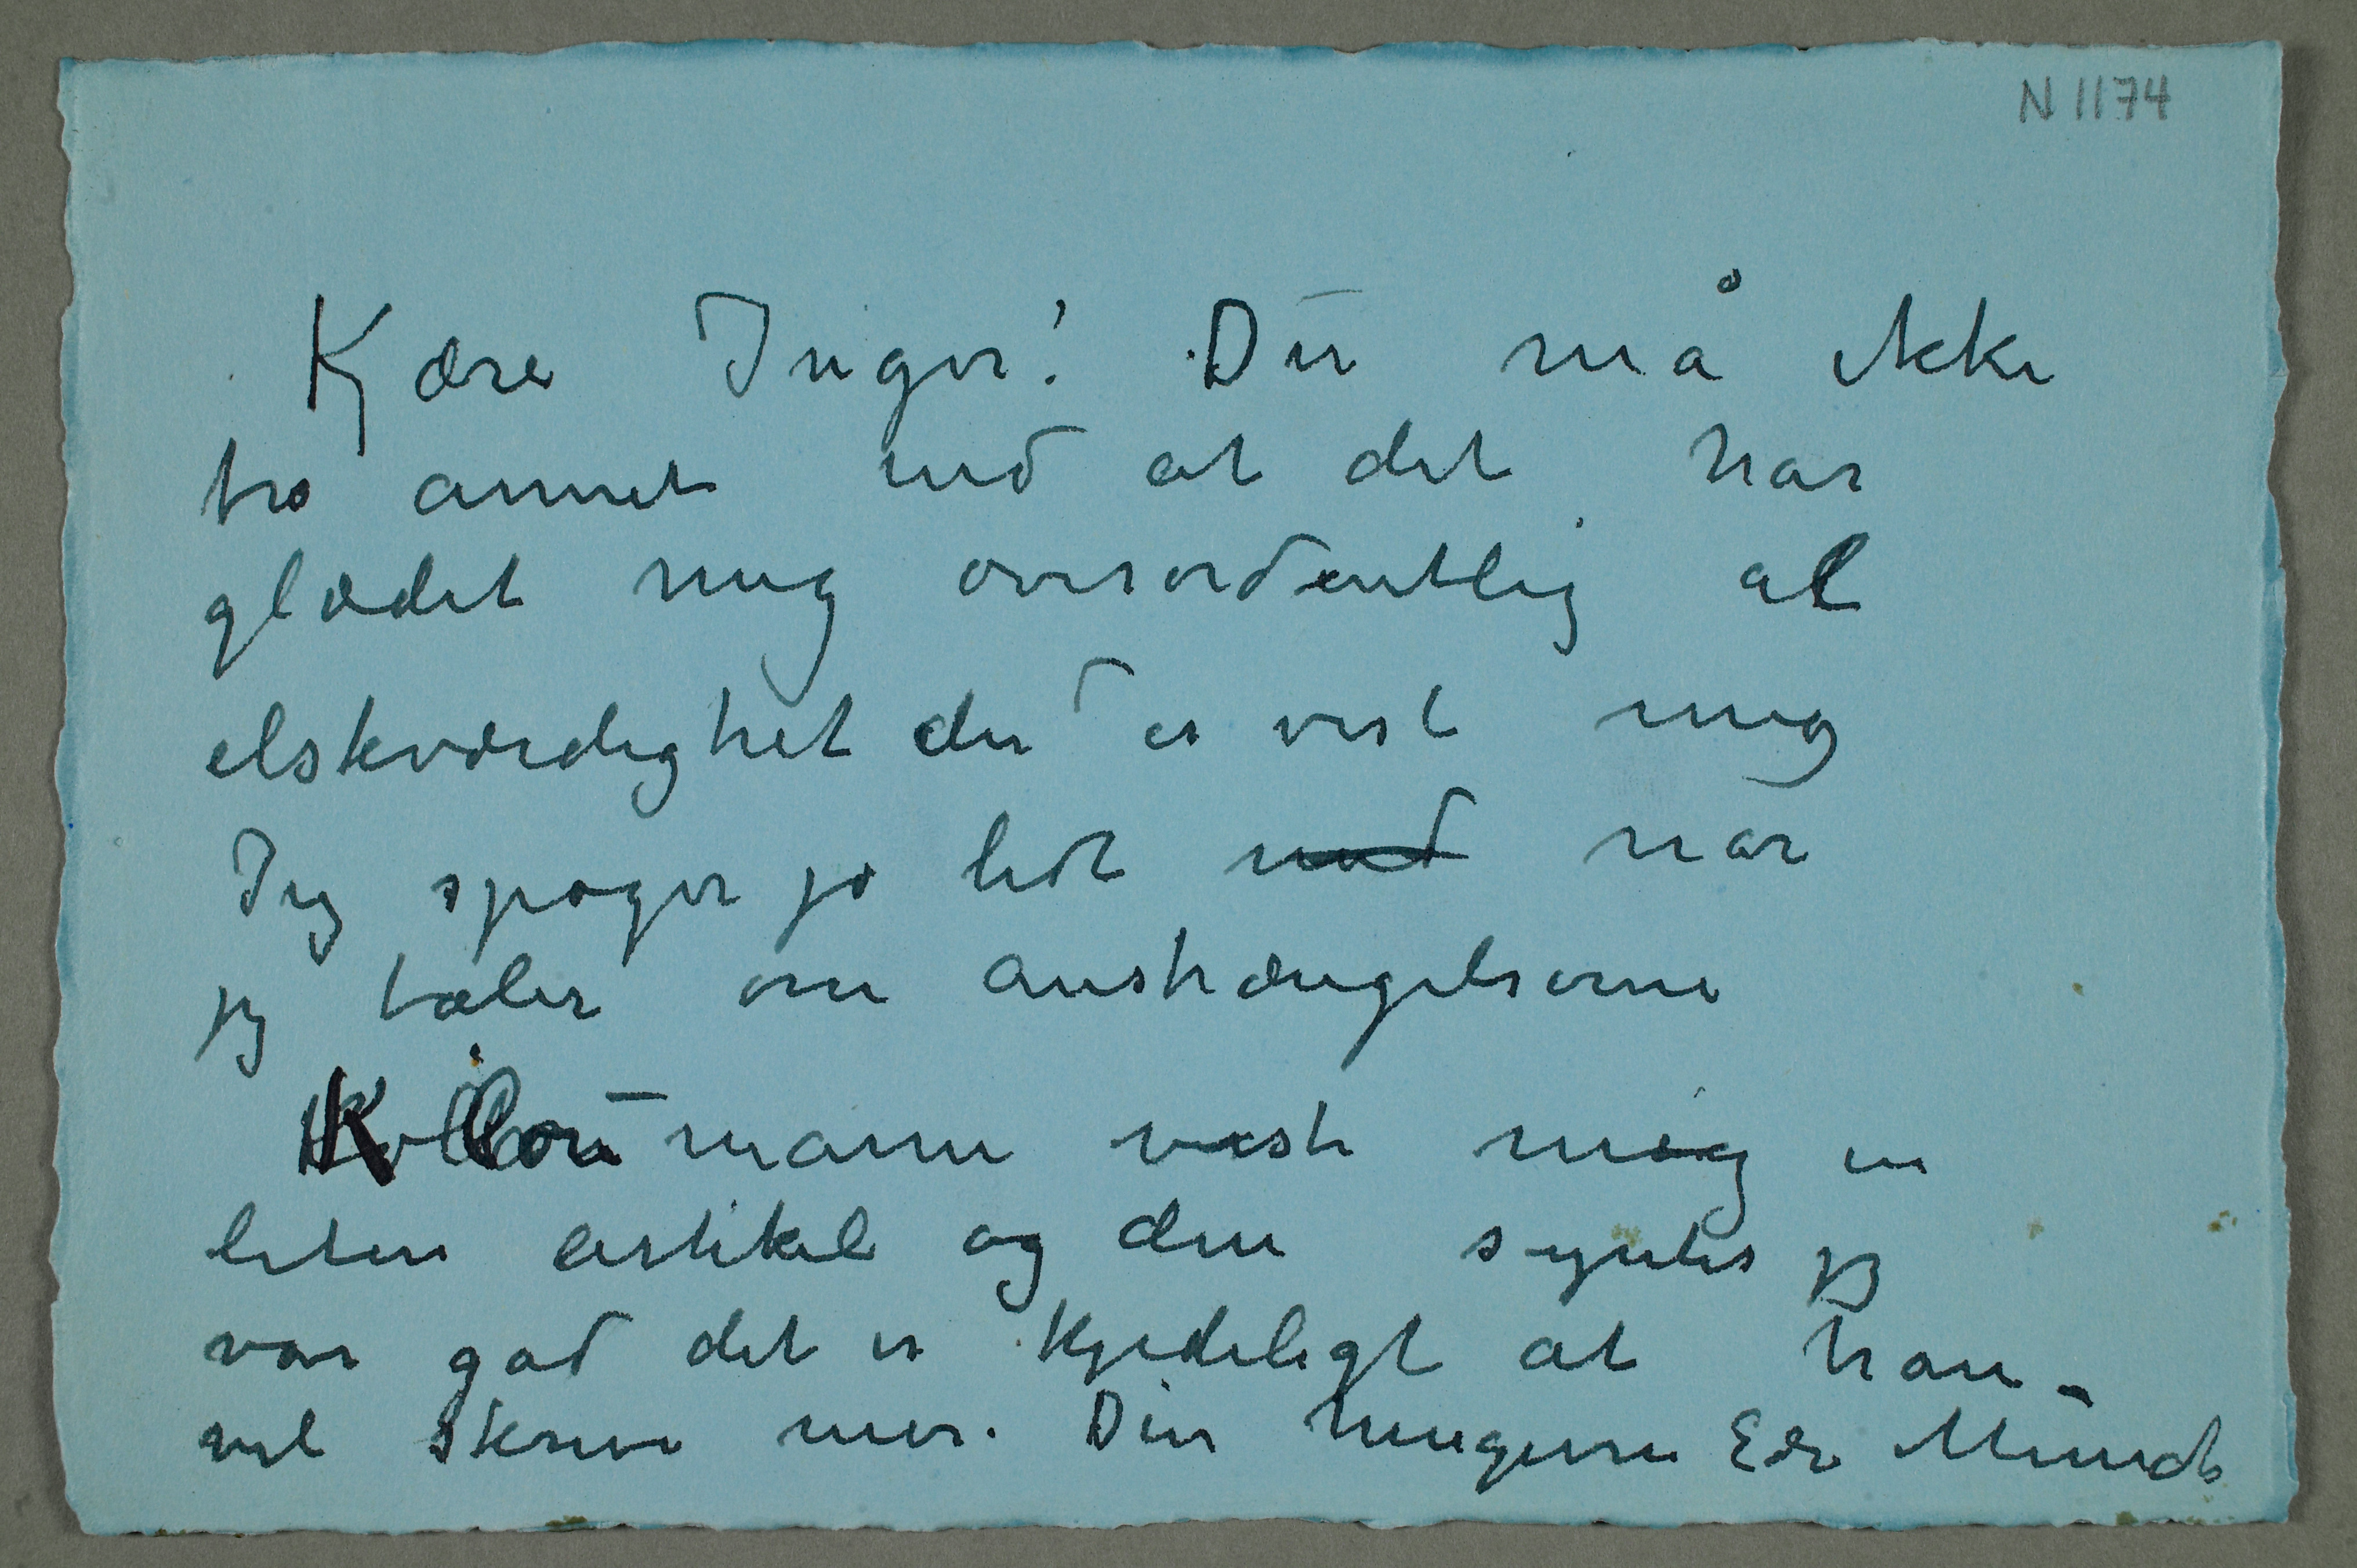 N 1174
Kjære Inger! Du må ikke
tro annet end at det har
glædet mig overordentlig al
elskværdighet der er vist mig
Jeg spøger jo lidt med når
jeg taler om anstrængelserne
K mann viste mig en
liten artikel og den syntes jeg
var god det er kjedeligt at han
vil skrive mer. Din hengivne Edv Munch